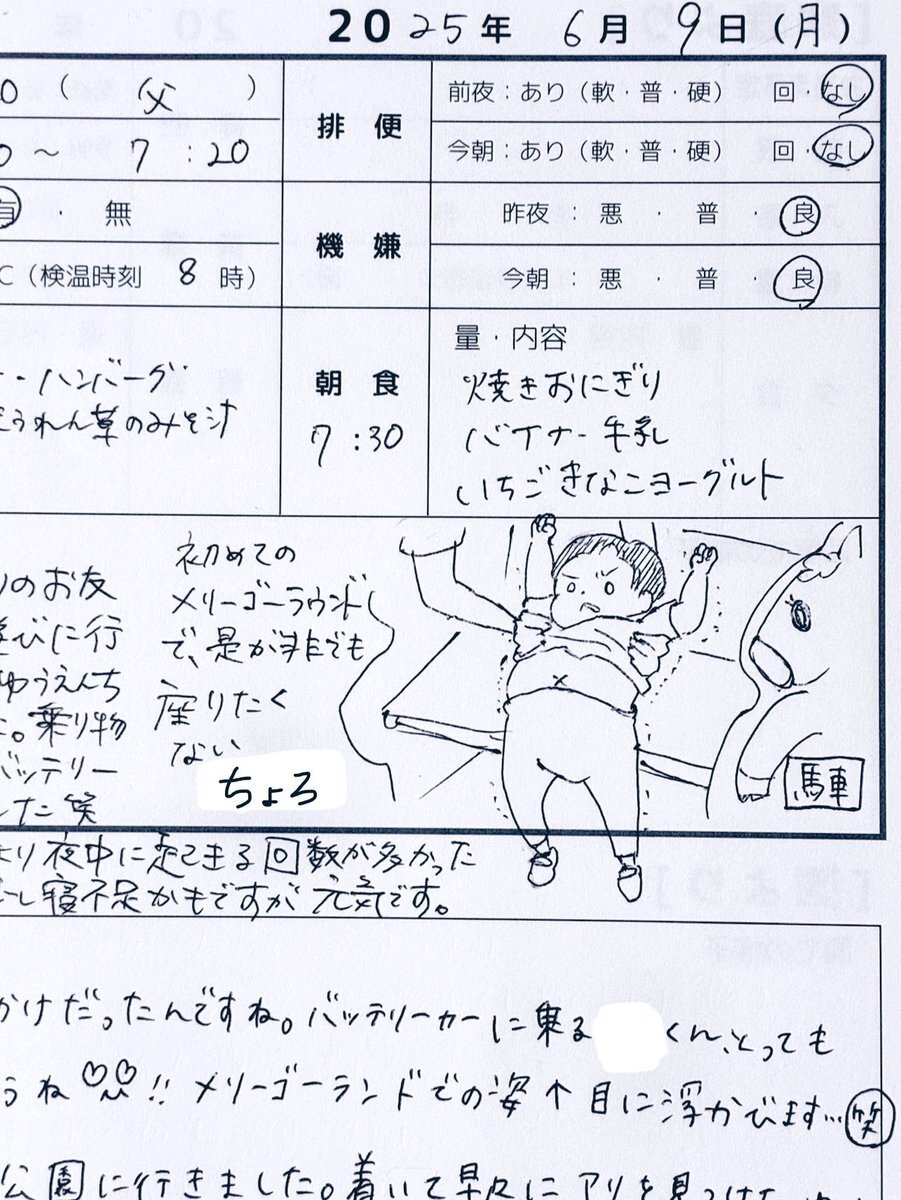 2025年 6月 9日（月）
0 （ 父 ）
排便
前夜：あり（軟・普・硬） 回 なし
0～ 7：20
今朝：あり（軟・普・硬） 回・なし
有・無
機嫌
昨夜：悪・普・良
C（検温時刻 8 時）
今朝：悪・普・良
・ハンバーグ
うれん草のみそ汁
朝食
7：30
量・内容
焼きおにぎり
バナナ・牛乳
いちごきなこヨーグルト
りのお友
びに行
ゆうえんち
。乗り物
バッテリー
した笑
初めての
メリーゴーラウンド
で、是が非でも
座りたく
ない
ちょろ
馬車
より夜中に起きる回数が多かった
し寝不足かもですが元気です。
かけだったんですね。バッテリーカーに乗る
くん、とっても
うね !! メリーゴーランドでの姿↑目に浮かびます…笑
公園に行きました。着いて早々にアリを見つけた